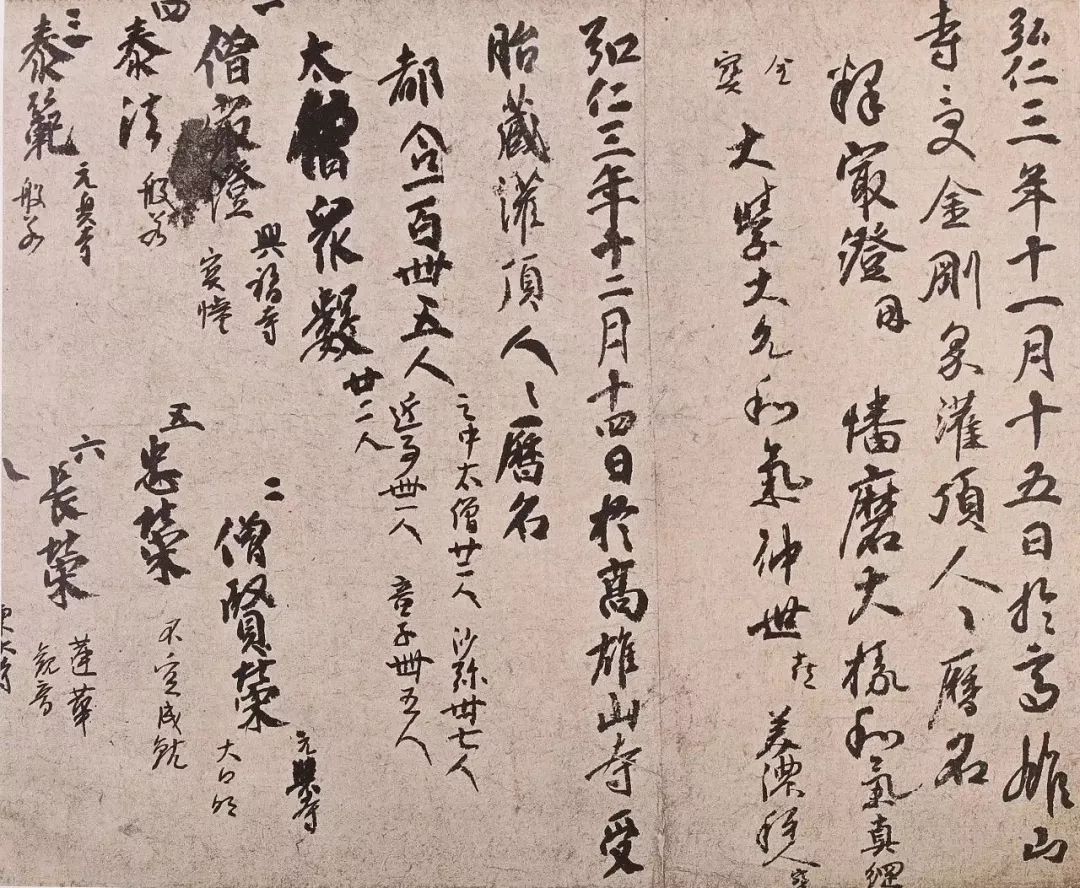 弘仁三年十一月十五日於高雄山
寺受金剛界灌頂人々暦名
釋最澄 因 播磨大掾和氣真綱
金
寶
大學大允和氣仲世 喜 美濃種人 寶
弘仁三年十二月十四日於高雄山寺受
胎藏灌頂人々暦名
都合一百卌五人
之中太僧廿二人 沙弥卅七人
近事卌一人 童子卌五人
太僧衆數 廿二人
一
僧最澄 興福寺
寶幢
二
僧賢榮 元興寺
大日
四
泰法 般若
五
忠榮 不空成就
三
泰範 元興寺
般若
六
長榮 蓮華
觀音
東大寺